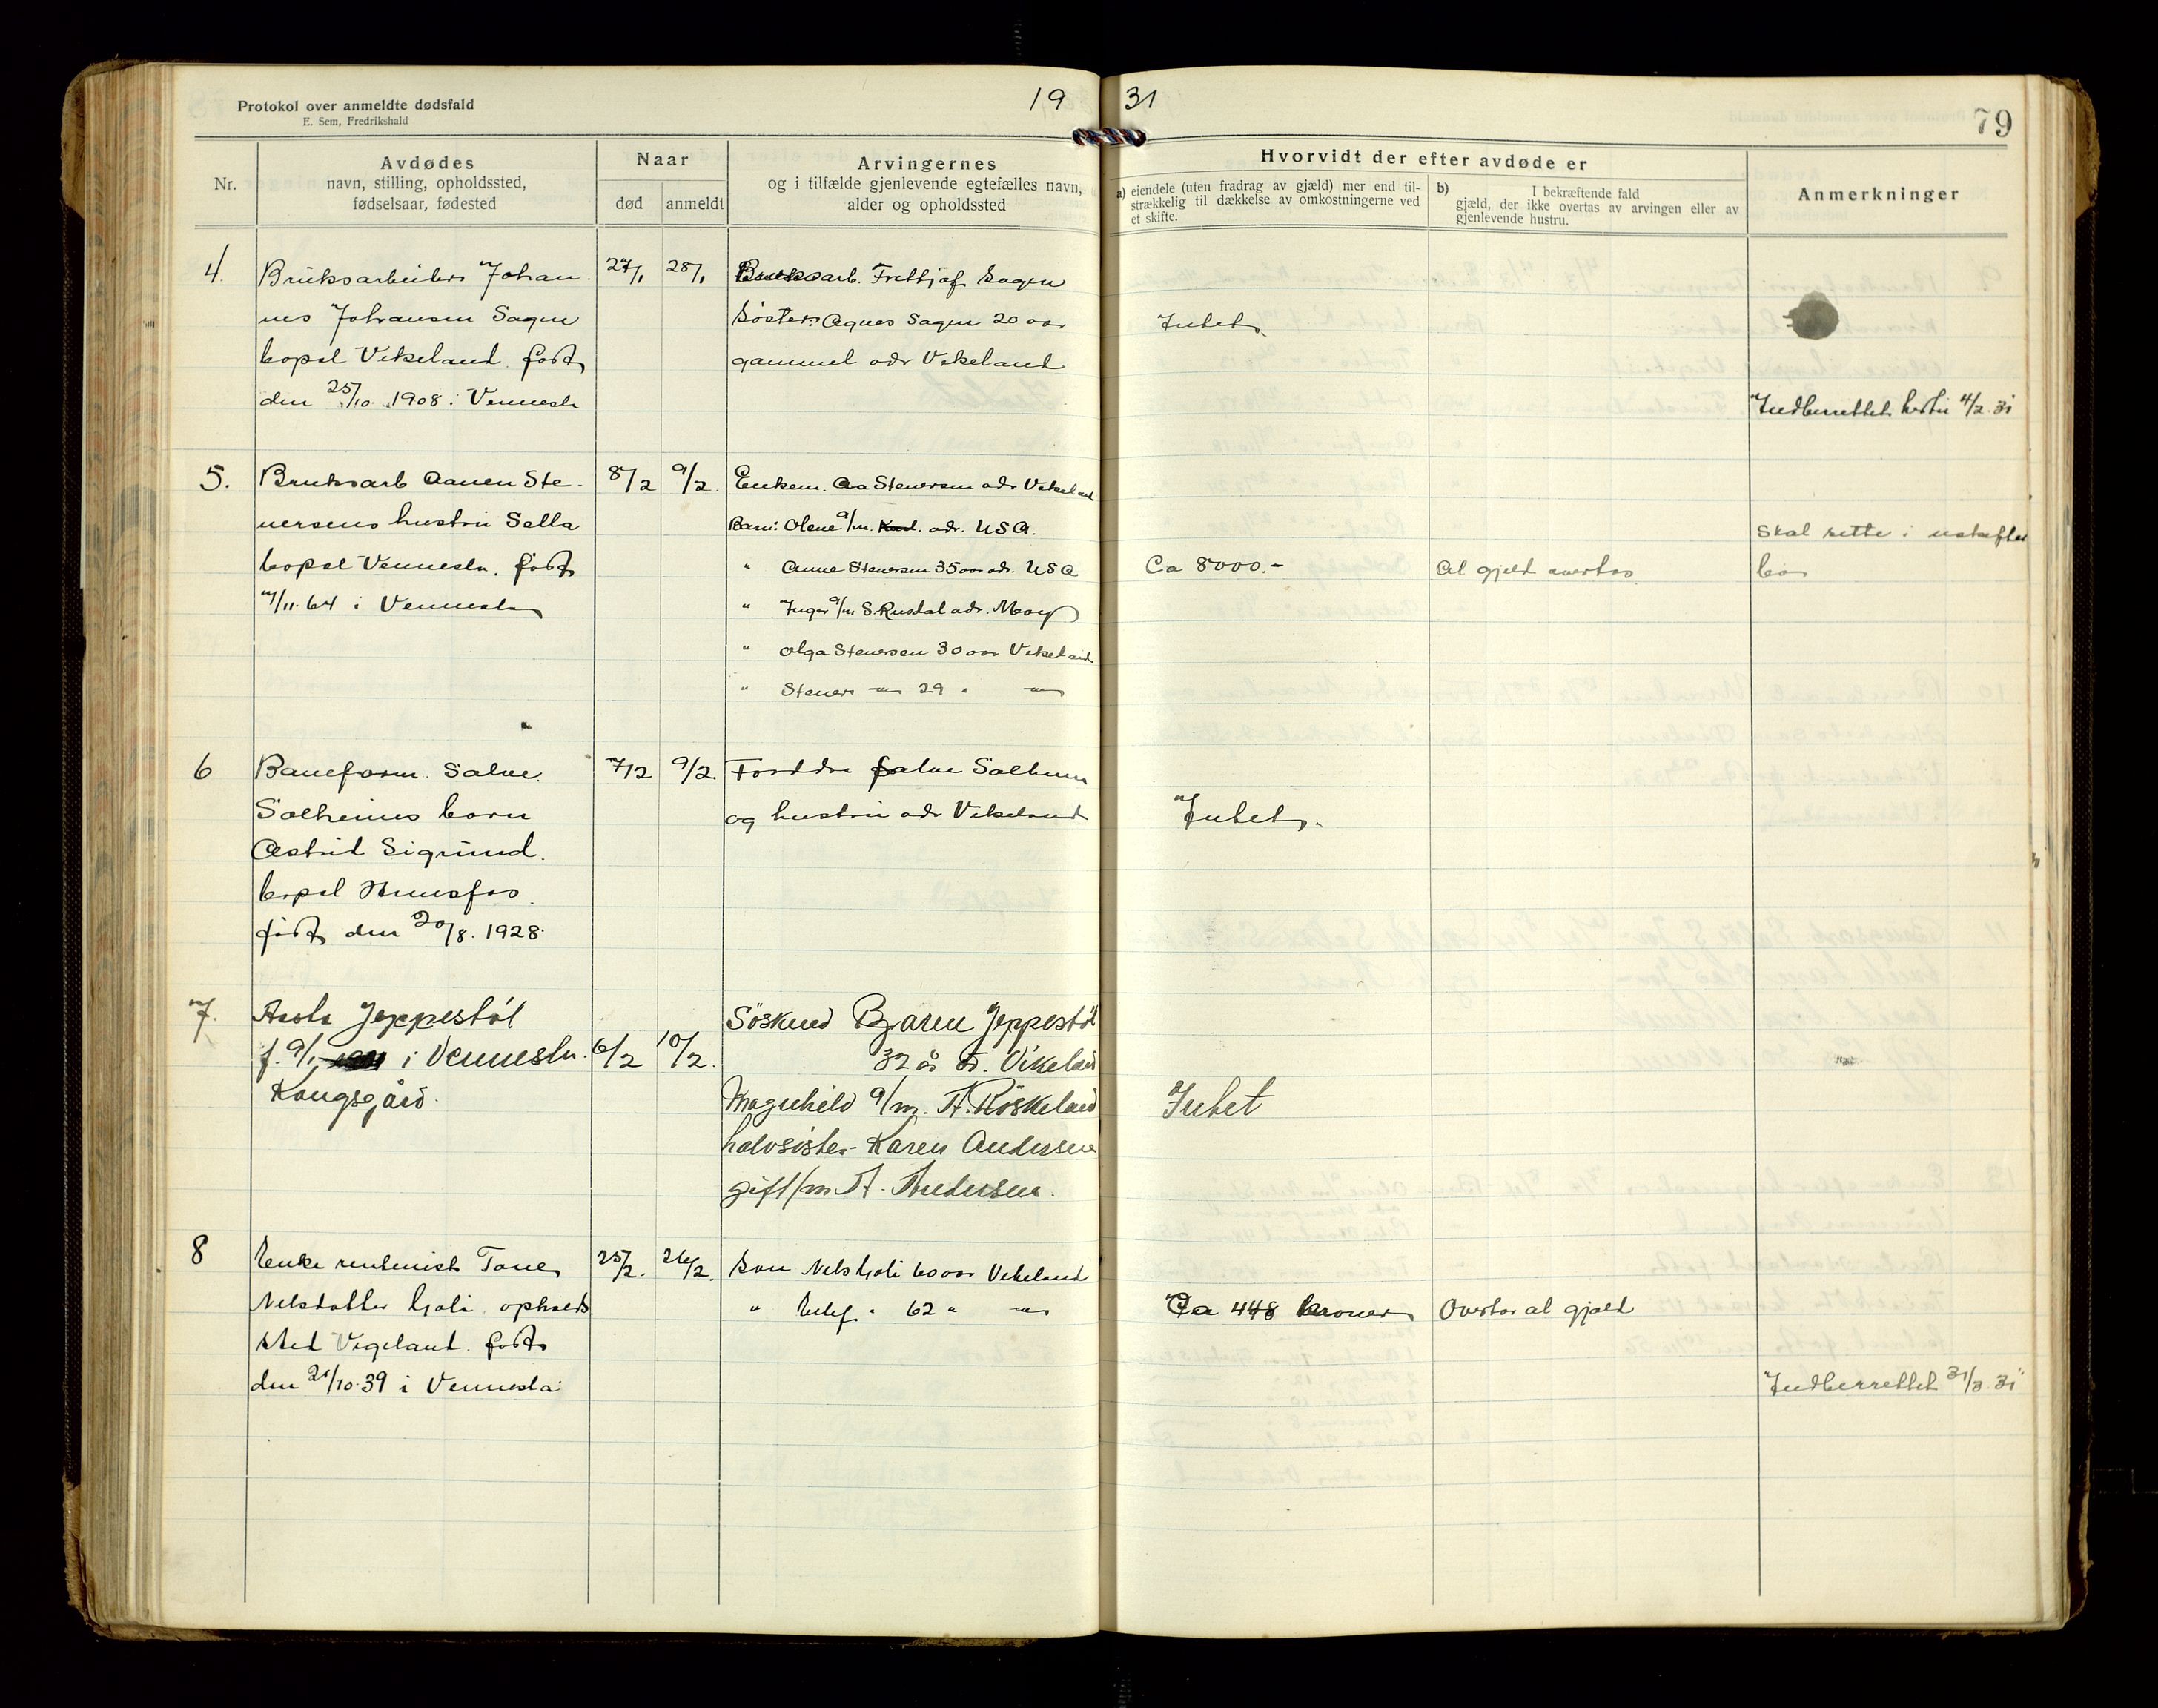 Protokol over anmeldte dødsfald
E. Sem, Fredrikshald
19 31
79
Nr.
Avdødes
navn, stilling, opholdssted,
fødselsaar, fødested
Naar
død
anmeldt
Arvingernes
og i tilfælde gjenlevende egtefælles navn,
alder og opholdssted
Hvorvidt der efter avdøde er
a) eiendele (uten fradrag av gjæld) mer end til-
strækkelig til dækkelse av omkostningerne ved
et skifte.
b) I bekræftende fald
gjæld, der ikke overtas av arvingen eller av
gjenlevende hustru.
Anmerkninger
4. Bruksarbeider Johan
nes Johansen Sagen
bopel Vikeland født
den 25/10 1908 i Vennesla
27/1 28/1
Bruksarb. Frittjof Sagen
Søster: Agnes Sagen 20 aar
gammel adr Vikeland
Intet.
Indberrettet 4/2 31
5. Bruksarb Aanen Ste-
nersens hustru Salla
bopel Vennesla. født
7/11-64 i Vennesla
8/2 9/2
Enkem. Aa Stenersen adr Vikeland
Barn: Olene g/m. adr. USA.
" Anne Stenersen 35 aar adr. USA
" Inger g/m S. Rusdal adr. Mosj
" Olga Stenersen 30 aar Vikeland
" Stener — 29 " —
Ca 8000.-
Al gjeld overtas
Skal sitte i uskiftet
bo
6 Baneform. Salve
Solheims barn
Astrid Sigrund.
bopel Hunsfos
født den 20/8. 1928.
7/2 9/2
Forældre Salve Solheim
og hustru adr Vikeland
Intet.
7. Aasta Jeppestøl
f. 9/1 i Vennesla.
Kongsgård.
6/2 10/2.
Söskend Bjarne Jeppestøl
32 år Vikeland
Magnhild g/m. A. Röskeland
halvsöster Karen Andersen
gift/m A. Andersen.
Intet
8 Enke Tone
Nelsdatter opholds
sted Vigeland. født
den 21/10-39 i Vennesla
25/2. 26/2.
Søn Nels 60 aar Vikeland
" " 62 " —
Ca 448 kroner
Overtar al gjæld
Indberrettet 31/3 31